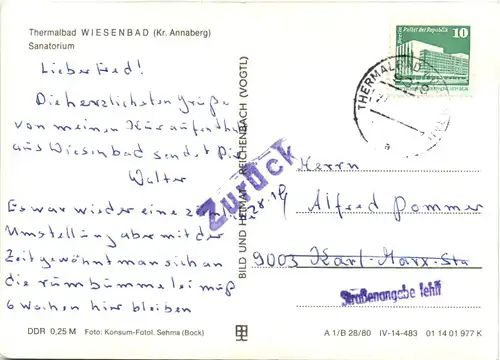 Thermalbad WIESENBAD (Kr. Annaberg)
Sanatorium
Lieber Fred!
Die herzlichsten Grüße
von meinen Kuraufenthalt
aus Wiesenbad sendet Dir
Walter
Es war wieder eine
Umstellung aber mit der
Zeit gewöhnt man sich an
die
6 Wochen hier bleiben
DDR 0,25 M Foto: Konsum-Fotol. Sehma (Bock)
BILD UND HEIMAT REICHENBACH (VOGTL)
Zurück
Palast der Republik
10
THERMALBAD
a
Herrn
Alfred Pommer
9003 Karl-Marx-Sta
Straßenangabe fehlt
A 1/B 28/80 IV-14-483 01 14 01 977 K